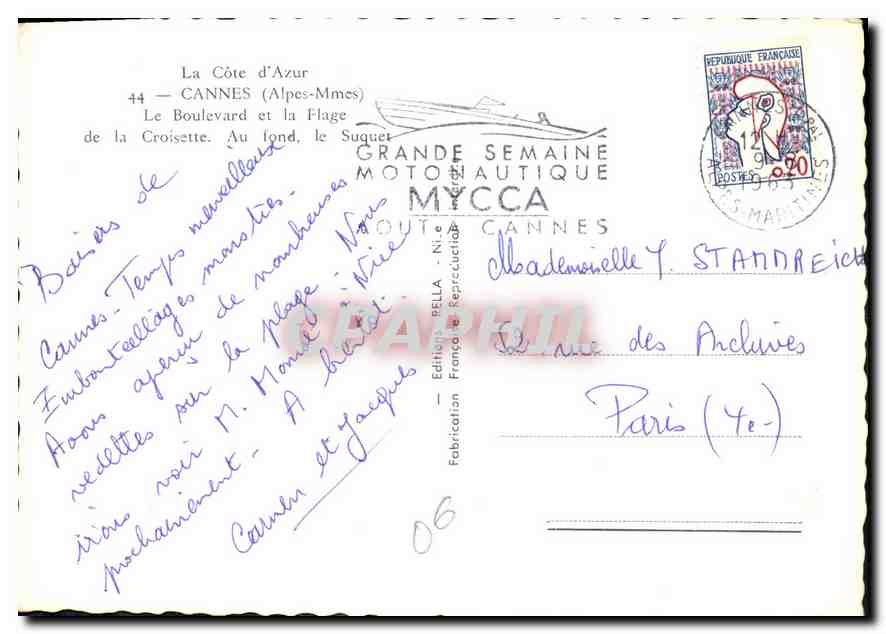 La Côte d'Azur
44 — CANNES (Alpes-Mmes)
Le Boulevard et la Plage
de la Croisette. Au fond, le Suquet
Baisers de
Cannes - Temps merveilleux
Embouteillages monstres.
Avons aperçu de nombreuses
vedettes sur la plage. Nous
irons voir M. à Nice
prochainement - A bientôt
Carmen et Jacques
06
GRANDE SEMAINE
MOTONAUTIQUE
MYCCA
AOUT A CANNES
— Editions RELLA - Nice
Fabrication Française Reproduction
CPAPHIL
REPUBLIQUE FRANÇAISE
POSTES 0,20
12 H
9 - 
1963
ALPES-MARITIMES
Mademoiselle Y. STAMMREICH
52 rue des Archives
Paris (4e-)